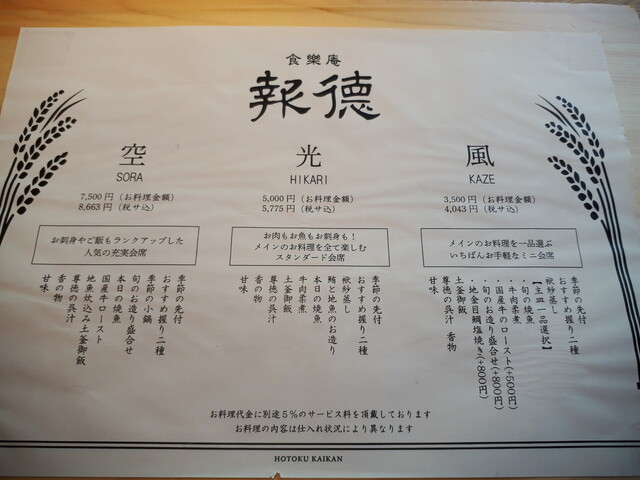 食樂庵
報徳
空
SORA
7,500円（お料理金額）
8,663円（税サ込）
お刺身やご飯もランクアップした
人気の充実会席
季節の先付
おすすめ握り二種
季節の小鍋
旬のお造り盛合せ
本日の焼魚
国産牛ロースト
地魚炊込み土釜御飯
尊徳の呉汁
香の物
甘味
光
HIKARI
5,000円（お料理金額）
5,775円（税サ込）
お肉もお魚もお刺身も！
メインのお料理を全て楽しむ
スタンダード会席
季節の先付
おすすめ握り二種
袱紗蒸し
鮪と地魚のお造り
本日の焼魚
牛肉柔煮
土釜御飯
尊徳の呉汁
香の物
甘味
風
KAZE
3,500円（お料理金額）
4,043円（税サ込）
メインのお料理を一品選ぶ
いちばんお手軽なミニ会席
季節の先付
おすすめ握り二種
袱紗蒸し
【主皿一品選択】
・旬の焼魚
・牛肉柔煮
・国産牛のロースト(+500円)
・旬のお造り盛合せ(+800円)
・地金目鯛塩焼き(+800円)
土釜御飯
尊徳の呉汁 香物
甘味
お料理代金に別途5%のサービス料を頂戴しております
お料理の内容は仕入れ状況により異なります
HOTOKU KAIKAN